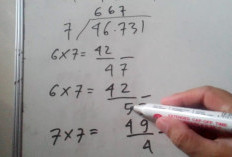 6.67
7 √46.731
6×7= 42
47
6×7= 42
5
7×7= 49
4